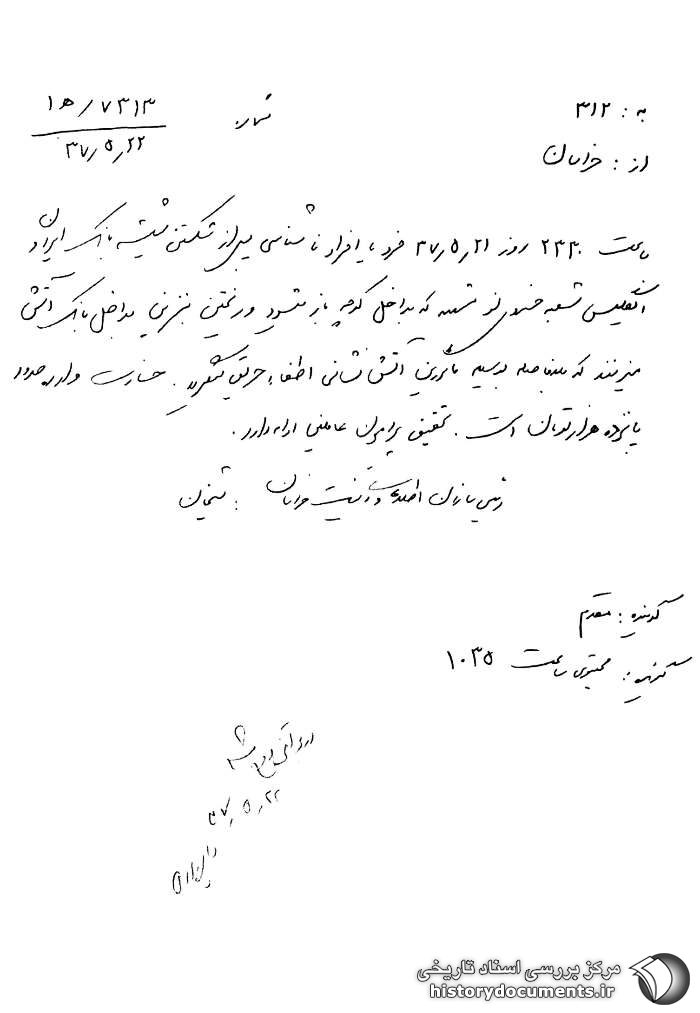 به : ۳۱۲
از : خراسان
شماره ۱۵/۷۳۱۳
۳۷/۵/۲۲
ساعت ۲۳۳۰ روز ۳۷/۵/۲۱ فرد یا افراد ناشناسی پس از شکستن شیشه بانک ایران و
انگلیس شعبه خسروی نو مشهد که بداخل کوچه باز میشود و ریختن بنزین بداخل بانک آتش
میزنند که بلافاصله بوسیله مأمورین آتش نشانی اطفاء حریق میگردد . خسارت وارده حدود
پانزده هزار تومان است . تحقیق پیرامون عاملین ادامه دارد .
رئیس سازمان اطلاعات و امنیت خراسان : شیخان
گوینده : مقدم
گیرنده : ساعت ۱۰۳۵
۳۷/۵/۲۲
مرکز بررسی اسناد تاریخی
historydocuments.ir